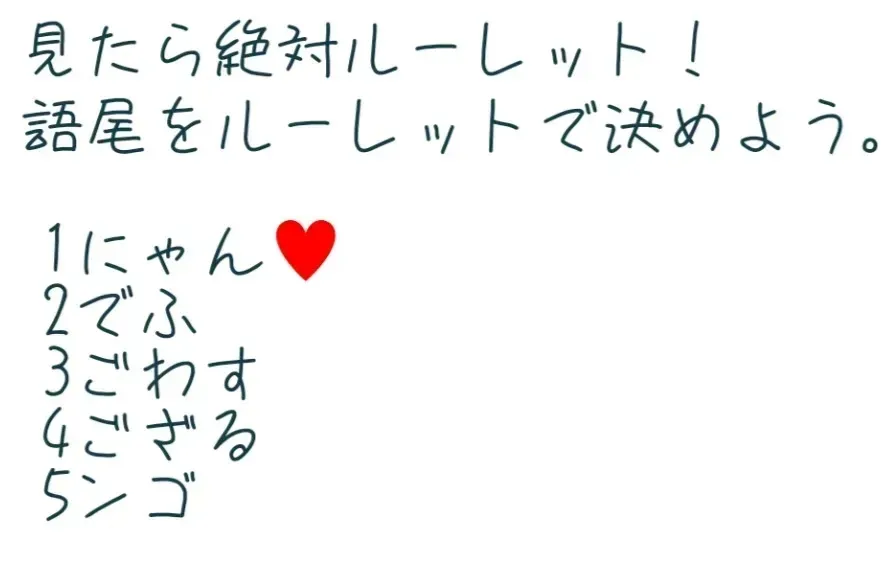 見たら絶対ルーレット!
語尾をルーレットで決めよう。
1にゃん♥
2でふ
3ごわす
4ござる
5ンゴ